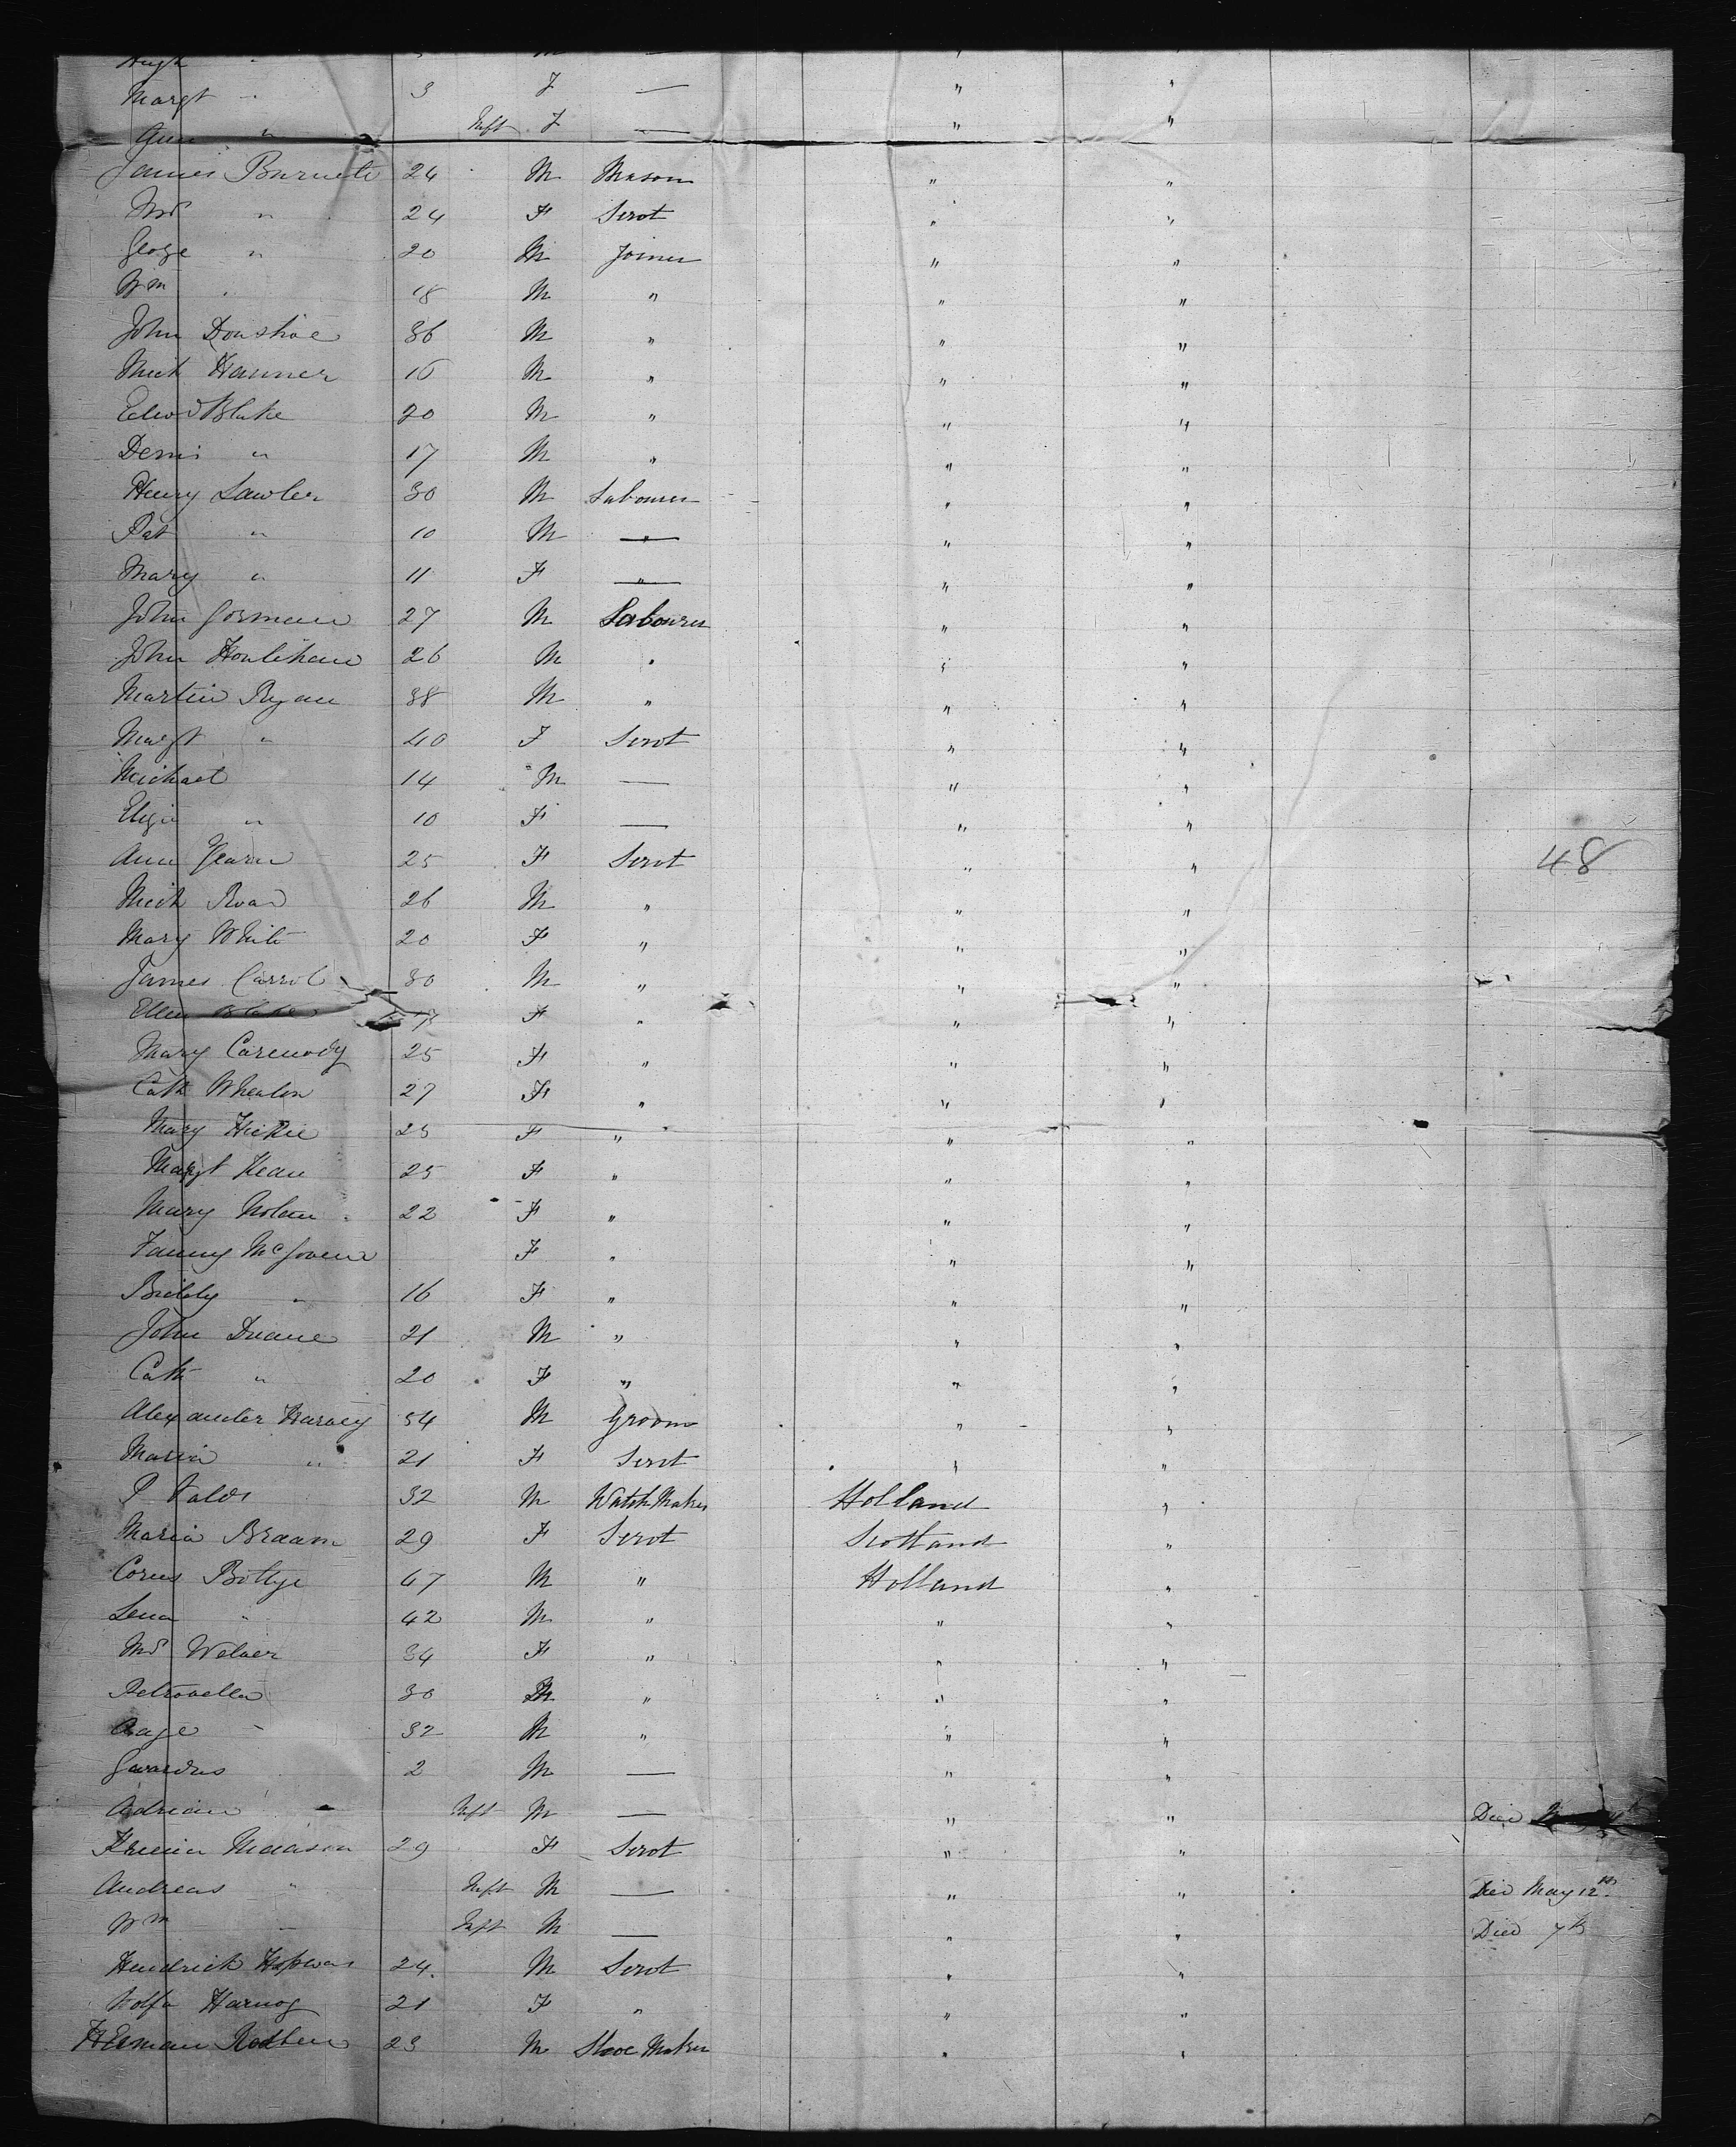 Hugh "
Margt " 3 F — " "
Ann " Inft F — " "
James Burnett 24 M Mason " "
Mrs " 24 F Servt " "
George " 20 M Joiner " "
Wm " 18 M " " "
John Donohoe 36 M " " "
Mich 16 M " " "
Edwd Blake 20 M " " "
Denis " 17 M " " "
Henry Lawler 30 M Labourer " "
Pat " 10 M — " "
Mary " 11 F — " "
John Gorman 27 M Labourer " "
John Houlihan 26 M " " "
Martin Ryan 38 M " " "
Margt " 40 F Servt " "
Michael 14 M — " "
Eliza " 10 F — " "
Ann 25 F Servt " " 48
Mich 26 M " " "
Mary White 20 F " " "
James Carrol 30 M " " "
Ellen Blake 17 F " " "
Mary Carmody 25 F " " "
Cath Whealon 27 F " " "
Mary Hickie 25 F " " "
Margt Kean 25 F " " "
Mary Nolan 22 F " " "
Fanny McGovern F " " "
Biddy " 16 F " " "
John Duane 21 M " " "
Cath " 20 F " " "
Alexander Harvey 34 M Groom " "
Maria " 21 F Servt " "
P 32 M Watch Maker Holland "
Maria Braam 29 F Servt Scotland "
Corns 47 M " Holland "
Lena " 42 M " " "
Mrs Welver 34 F " " "
Petronella 30 M " " "
Aage " 32 M " " "
2 M — " "
Adrian Inft M — " " Died
29 F Servt " "
Andreas " Inft M — " " Died May 12th
Wm " Inft M — " " Died 7th
Hendrick 24 M Servt " "
21 F " " "
Herman 23 M Shoe Maker " "